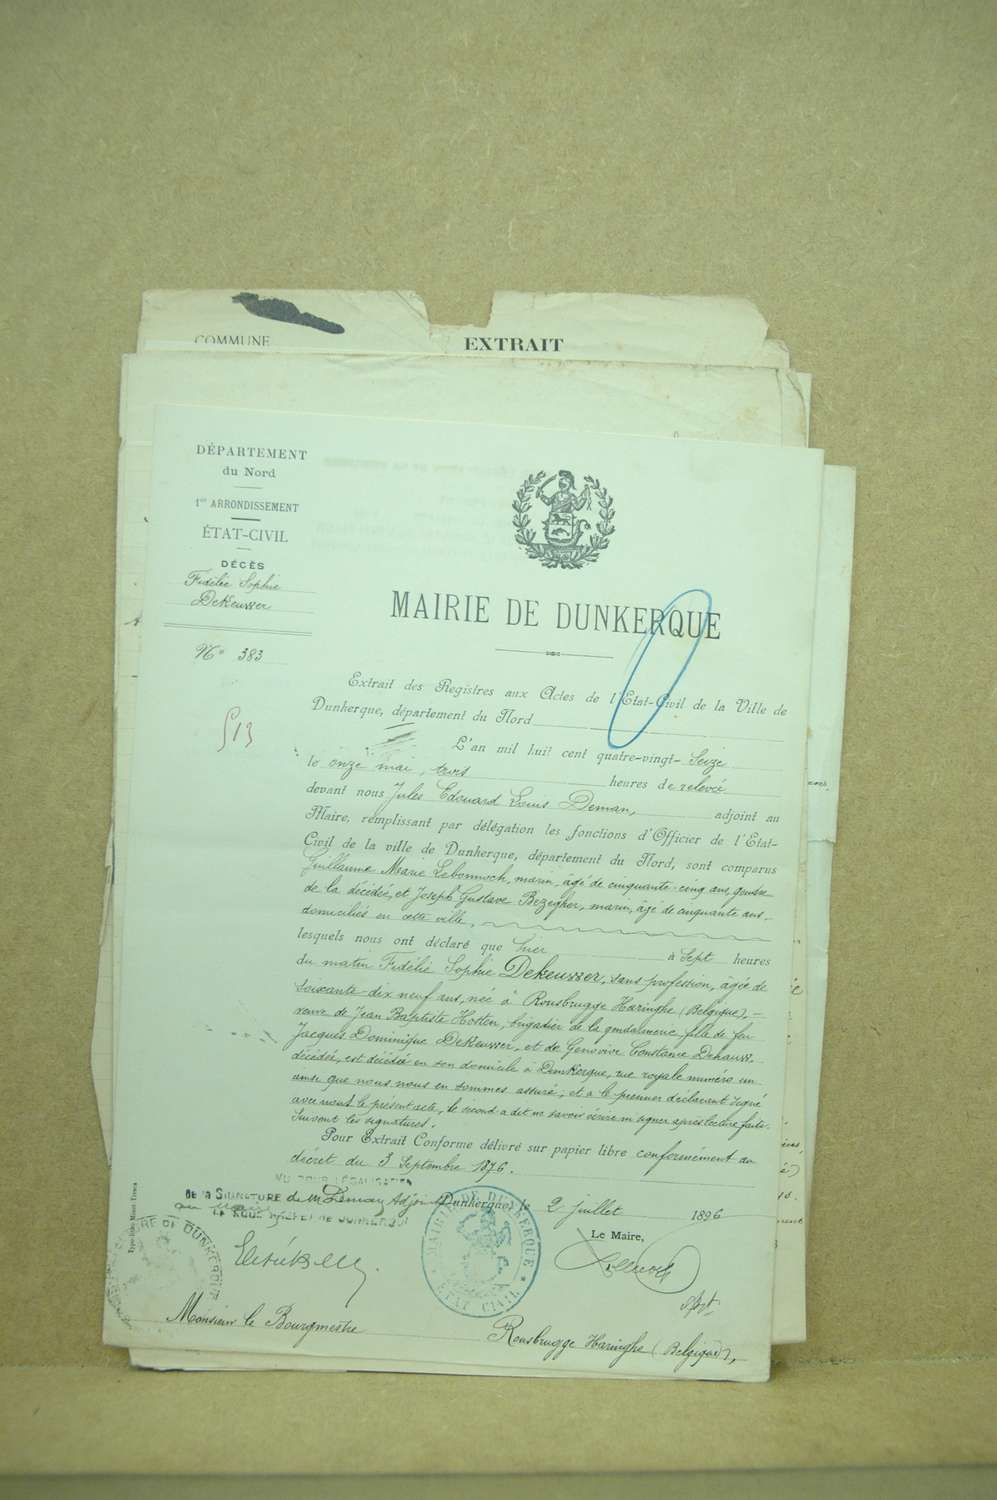 COMMUNE
EXTRAIT
DÉPARTEMENT
du Nord
1er ARRONDISSEMENT
ÉTAT-CIVIL
DÉCÈS
Fidélie Sophie
DeKeuwer
No 383
513
MAIRIE DE DUNKERQUE
Extrait des Registres aux Actes de l'État-Civil de la Ville de
Dunkerque, département du Nord
L'an mil huit cent quatre-vingt-Seize
le onze mai, trois heures de relevée
devant nous Jules Edouard Louis Deman, adjoint au
Maire, remplissant par délégation les fonctions d'Officier de l'État-
Civil de la ville de Dunkerque, département du Nord, sont comparus
Guillaume Marie, marin, âgé de cinquante-cinq ans, gendre
de la décédée, et Joseph Gustave Bezegher, marin, âgé de cinquante ans,
domiciliés en cette ville,
lesquels nous ont déclaré que hier à Sept heures
du matin Fidélie Sophie DeKeuwer, sans profession, âgée de
soixante-dix neuf ans, née à Rousbrugge Haringhe (Belgique), -
veuve de Jean Baptiste Hotten, brigadier de la gendarmerie, fille de feu
Jacques Dominique DeKeuwer, et de Genovive Constance
décédée, est décédée en son domicile à Dunkerque, rue royale numéro un
ainsi que nous nous en sommes assuré, et a le premier déclarant signé
avec nous le présent acte, le second a dit ne savoir écrire ni signer après lecture faite.
Suivent les signatures.
Pour Extrait Conforme délivré sur papier libre conformément au
décret du 3 Septembre 1876.
VU POUR LÉGALISATION
de la SIGNATURE de M Adjoint
Dunkerque, le 2 juillet 1896
Le Maire,
MAIRIE DE DUNKERQUE
ÉTAT CIVIL
Monsieur le Bourgmestre
Rousbrugge Haringhe (Belgique),